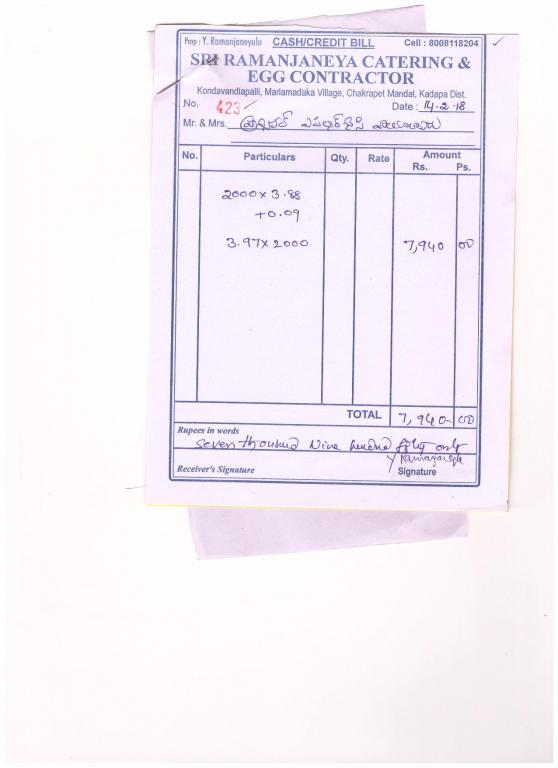 Prop : Y. Ramanjaneyulu CASH/CREDIT BILL Cell : 8008118204
SRI RAMANJANEYA CATERING &
EGG CONTRACTOR
Kondavandlapalli, Marlamadaka Village, Chakrapet Mandal, Kadapa Dist.
No. 423 Date : 14.2.18
Mr. & Mrs.
No. Particulars Qty. Rate Amount
Rs. Ps.
2000 x 3.88
+0.09
3.97 x 2000 7,940 00
TOTAL 7,940- 00
Rupees in words
Seven thousand Nine hundred only
Receiver's Signature Signature